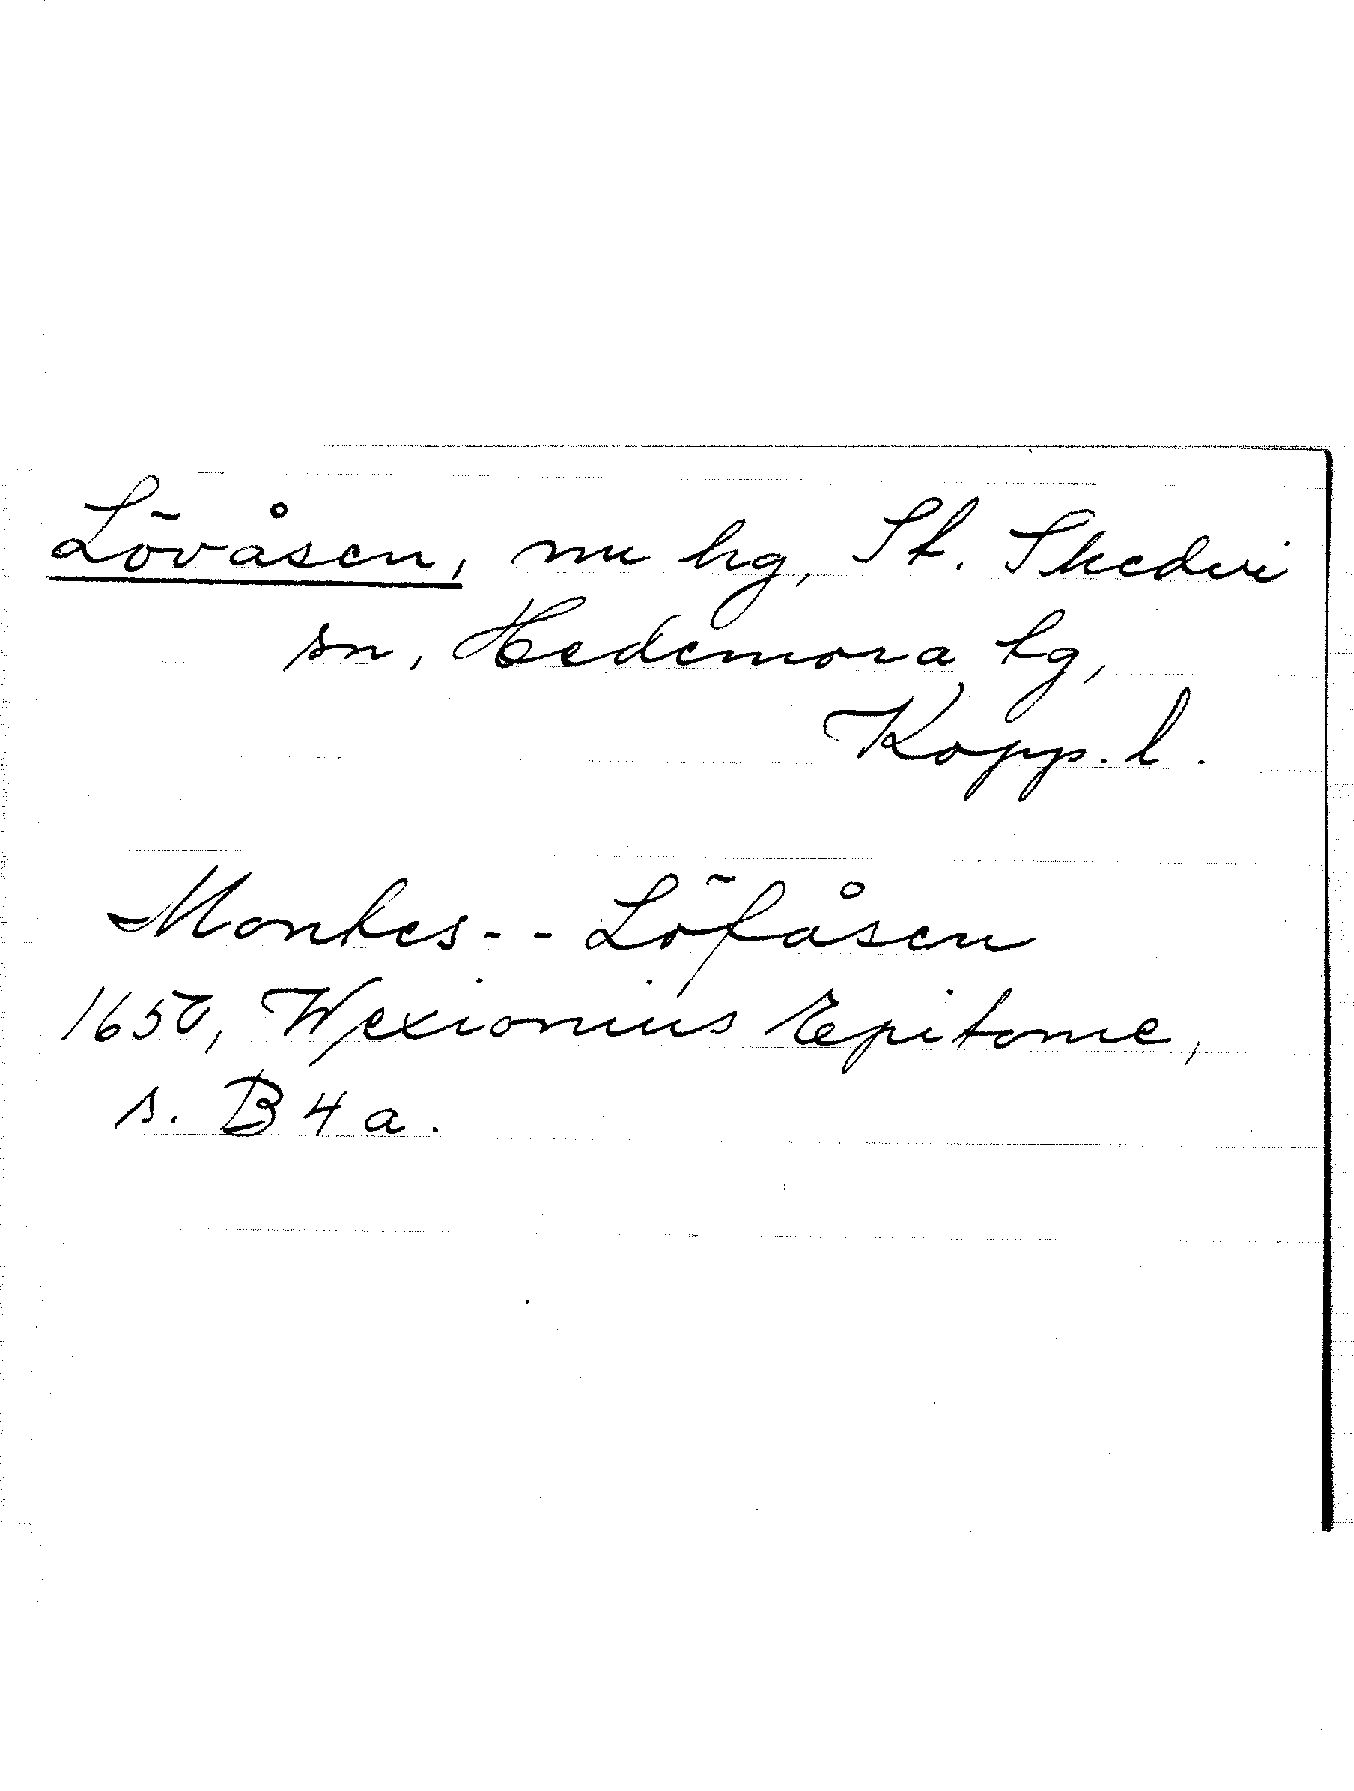 Lövåsen, nu hg, St. Skedvi
sn, Hedemora tg,
Kopp. l.
Montes -- Löfåsen
1650, Wexionius Epitome,
s. B 4 a.